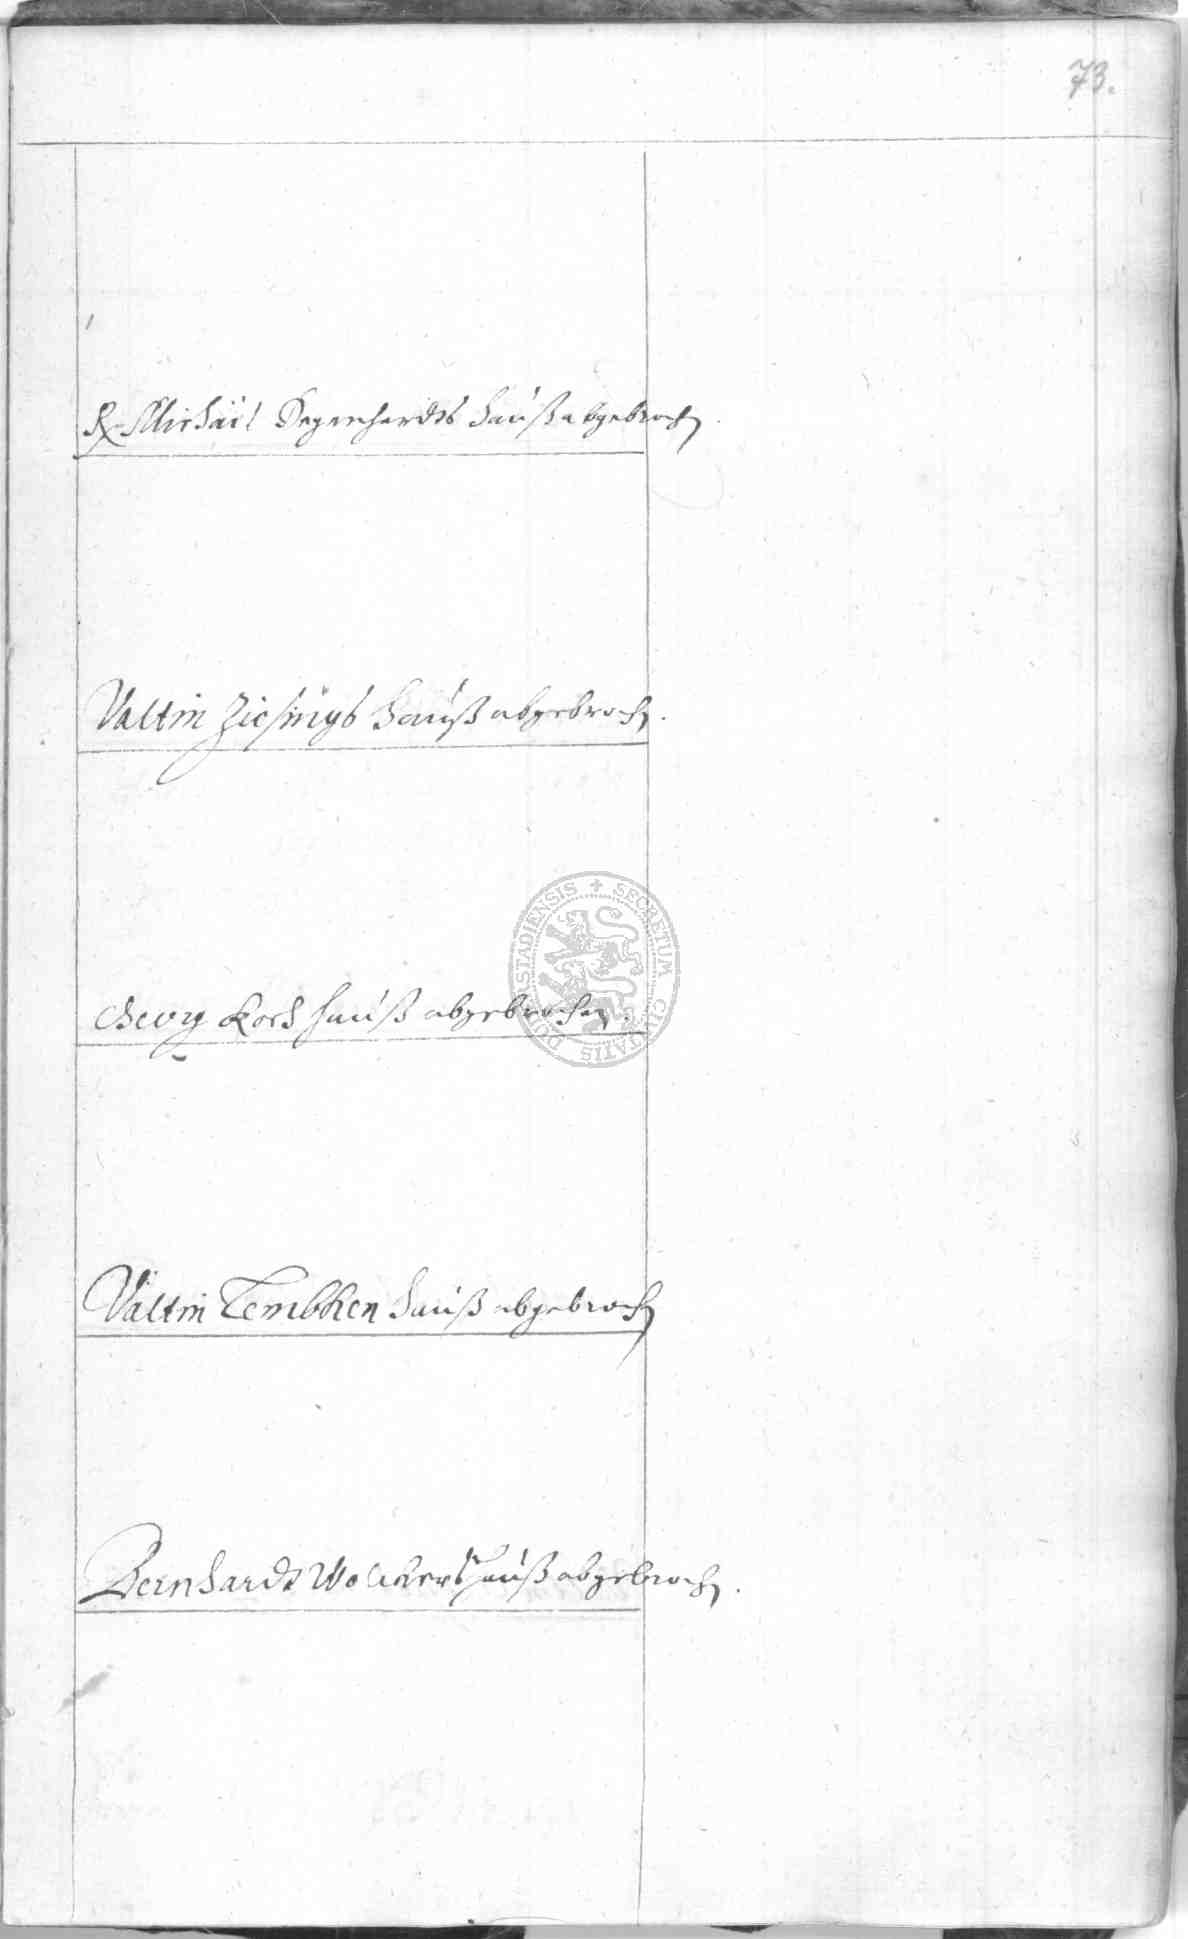 73.
Michäel Degenhardts Hauß abgebroch
Valtin Ziesings Hauß abgebroch.
Georg Koch Hauß abgebrochen.
Valtin Hauß abgebroch
Bernhardt Wolckers Hauß abgebroch.
SECRETUM CIVITATIS DUDERSTADIENSIS